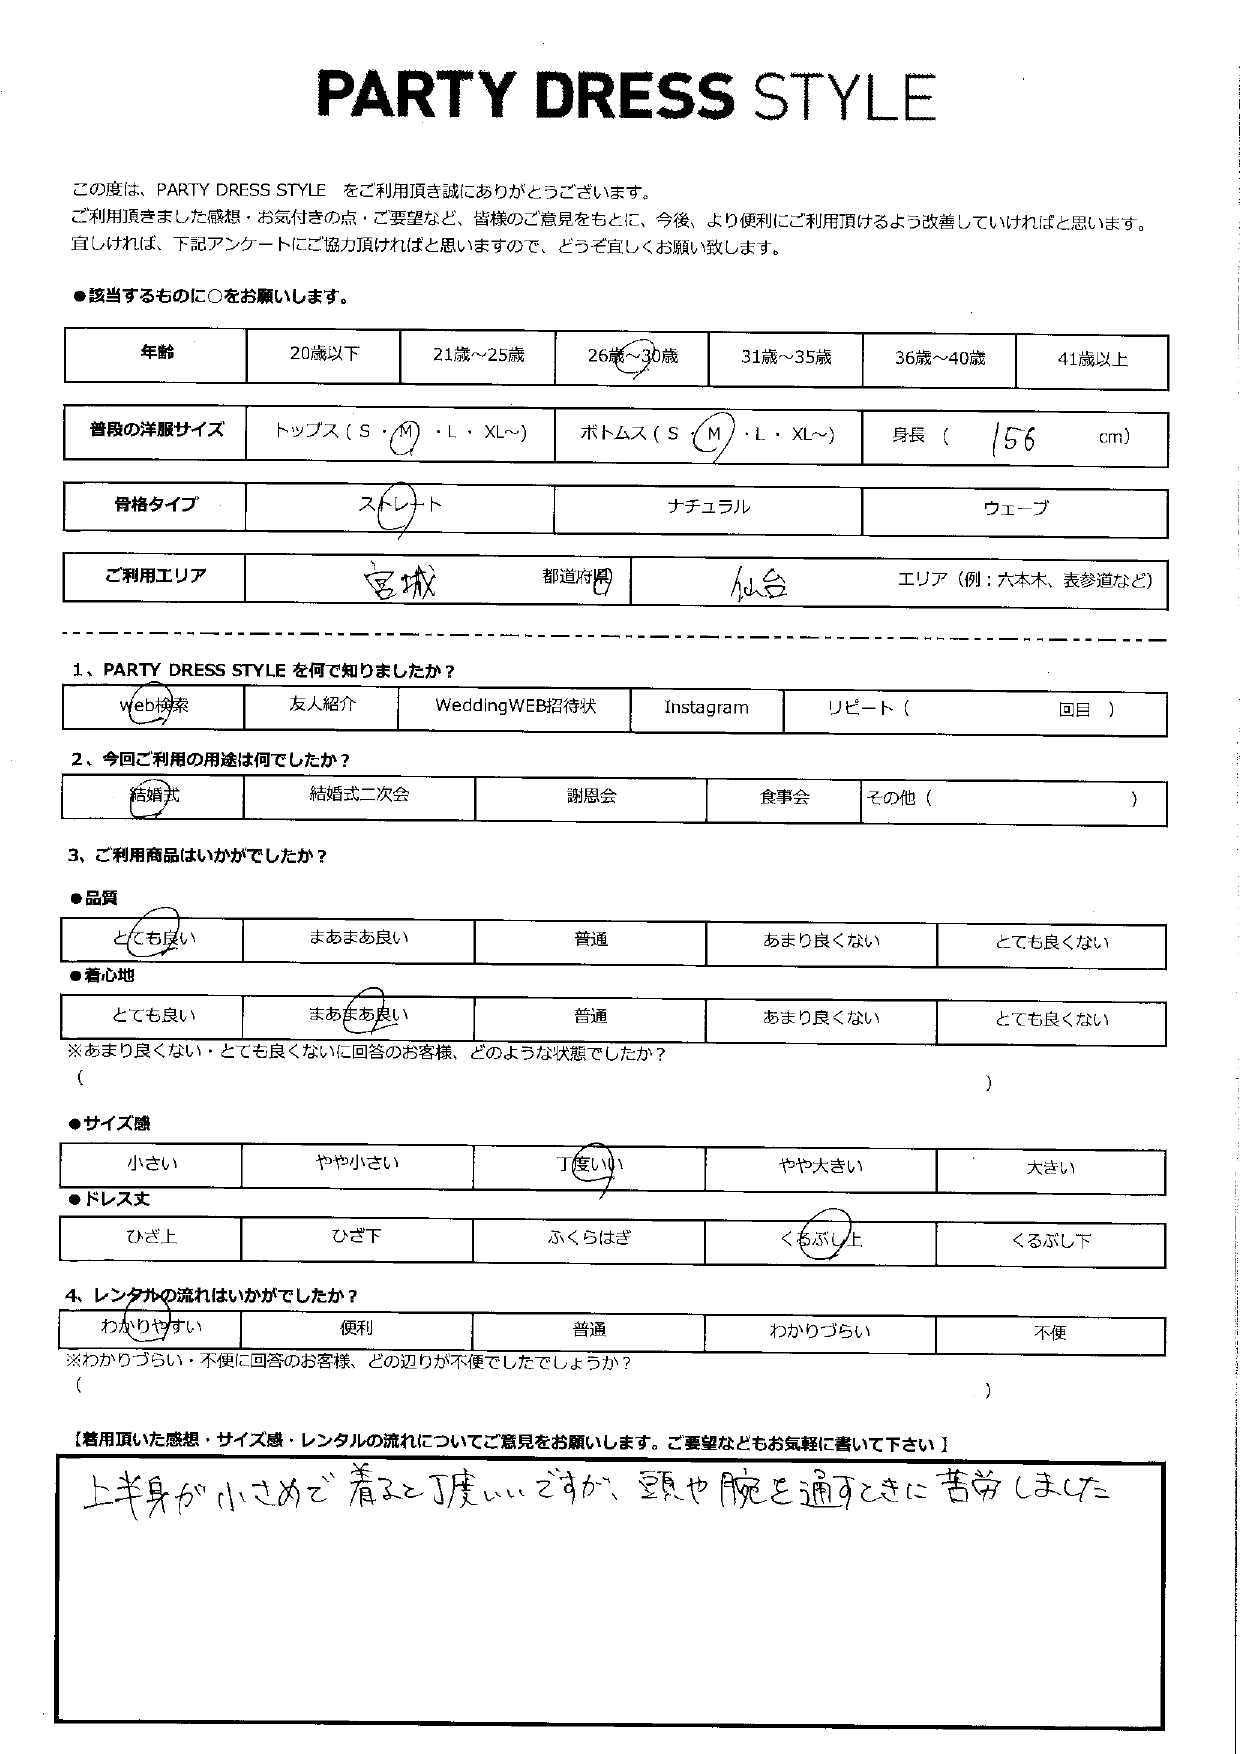 PARTY DRESS STYLE
この度は、PARTY DRESS STYLE　をご利用頂き誠にありがとうございます。
ご利用頂きました感想・お気付きの点・ご要望など、皆様のご意見をもとに、今後、より便利にご利用頂けるよう改善していければと思います。
宜しければ、下記アンケートにご協力頂ければと思いますので、どうぞ宜しくお願い致します。
●該当するものに○をお願いします。
年齢 20歳以下 21歳～25歳 26歳～30歳 31歳～35歳 36歳～40歳 41歳以上
普段の洋服サイズ トップス ( S ・ M ・ L ・ XL～) ボトムス ( S ・ M ・ L ・ XL～) 身長 ( 156 cm)
骨格タイプ ストレート ナチュラル ウェーブ
ご利用エリア 宮城 都道府県 仙台 エリア（例：六本木、表参道など）
1、PARTY DRESS STYLE を何で知りましたか？
web検索 友人紹介 WeddingWEB招待状 Instagram リピート ( 回目 )
2、今回ご利用の用途は何でしたか？
結婚式 結婚式二次会 謝恩会 食事会 その他 ( )
3、ご利用商品はいかがでしたか？
●品質
とても良い まあまあ良い 普通 あまり良くない とても良くない
●着心地
とても良い まあまあ良い 普通 あまり良くない とても良くない
※あまり良くない・とても良くないに回答のお客様、どのような状態でしたか？
( )
●サイズ感
小さい やや小さい 丁度いい やや大きい 大きい
●ドレス丈
ひざ上 ひざ下 ふくらはぎ くるぶし上 くるぶし下
4、レンタルの流れはいかがでしたか？
わかりやすい 便利 普通 わかりづらい 不便
※わかりづらい・不便に回答のお客様、どの辺りが不便でしたでしょうか？
( )
【着用頂いた感想・サイズ感・レンタルの流れについてご意見をお願いします。ご要望などもお気軽に書いて下さい】
上半身が小さめで着ると丁度いいですが、頭や腕を通すときに苦労しました